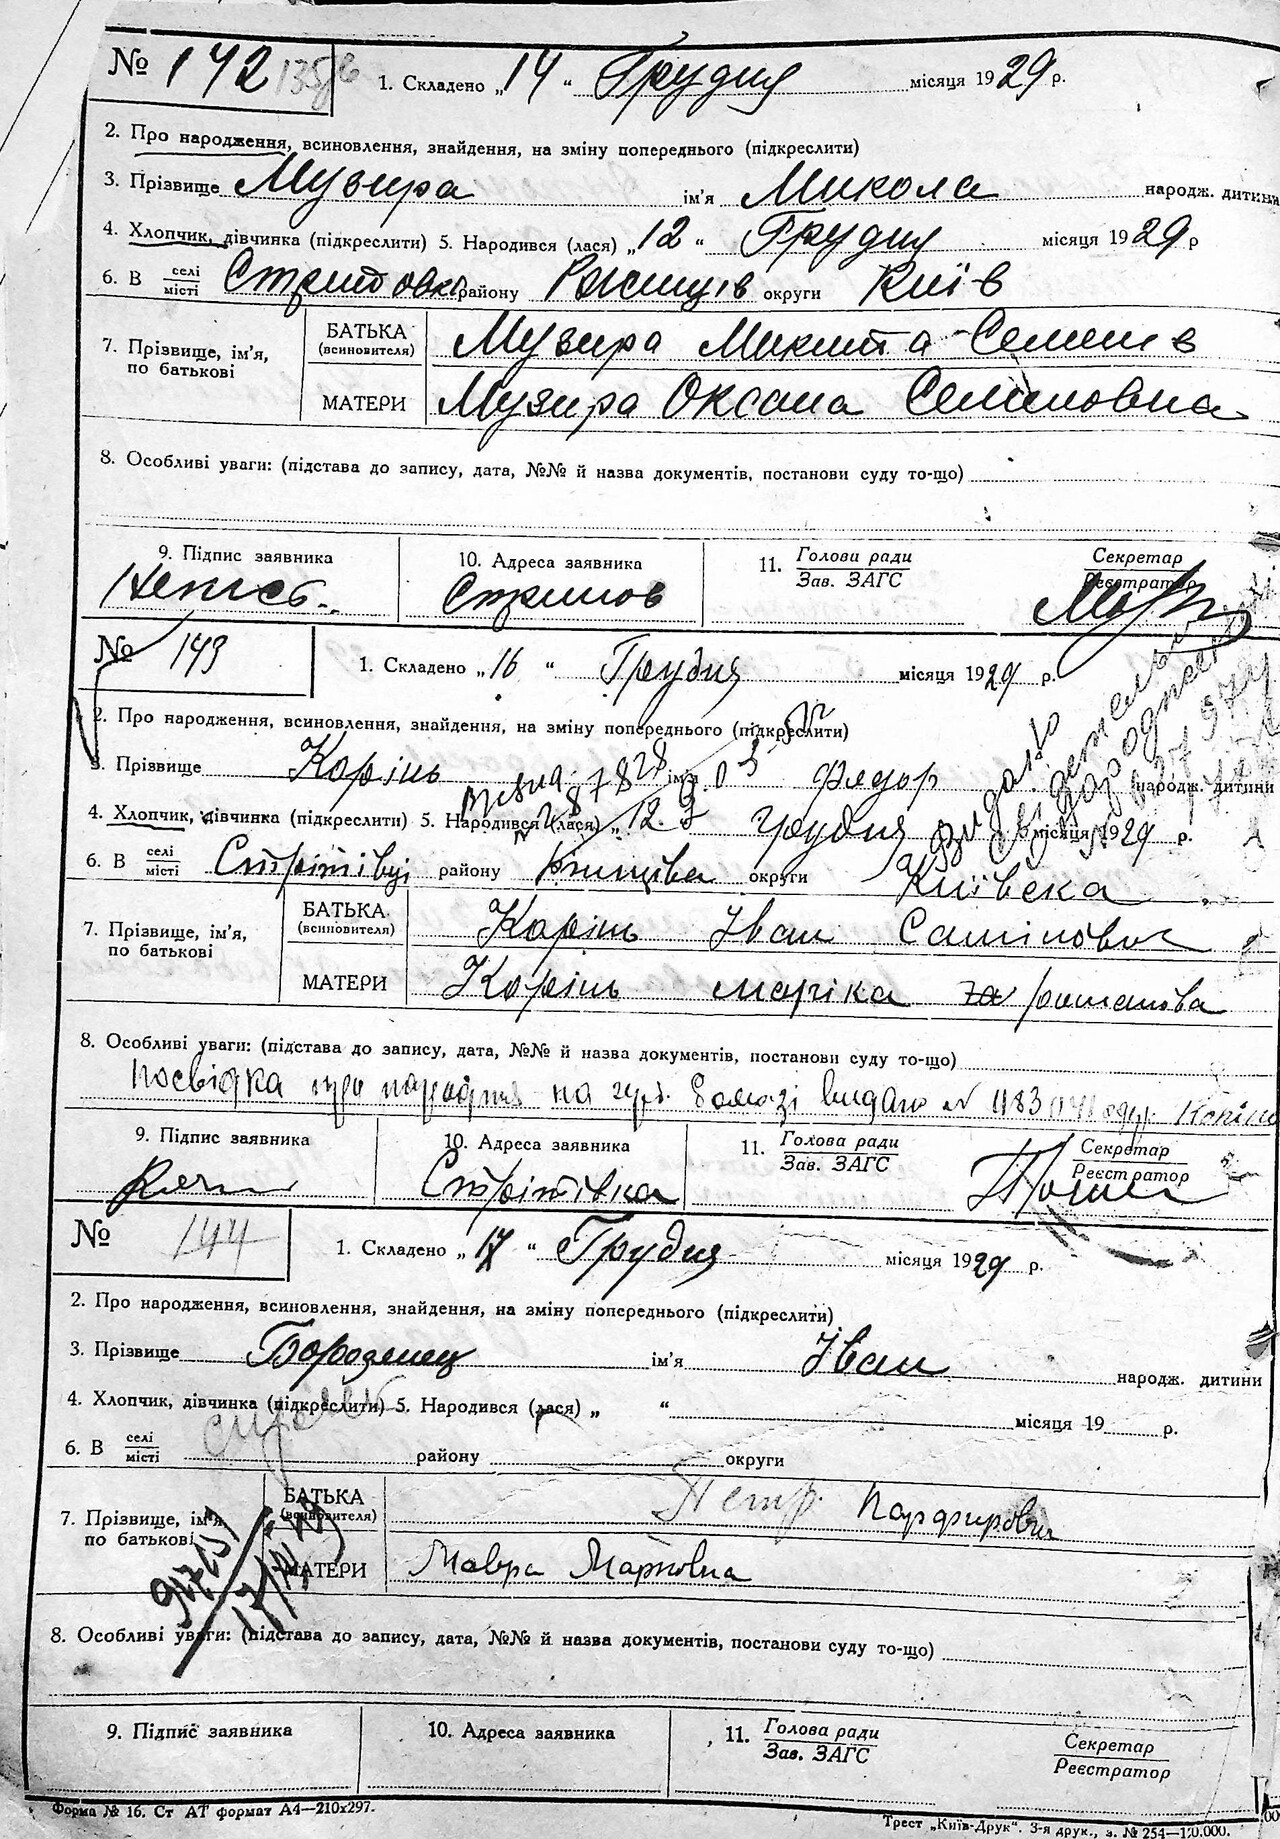 № 142 1. Складено „14“ Грудня місяця 1929 р.
2. Про народження, всиновлення, знайдення, на зміну попереднього (підкреслити)
3. Прізвище Музира ім'я Микола народж. дитини
4. Хлопчик, дівчинка (підкреслити) 5. Народився (лася) „12“ Грудня місяця 1929 р
6. В селі/місті Стритовка району Ржищів округи Київ
7. Прізвище, ім'я, по батькові
БАТЬКА (всиновителя) Музира Микита Семенів
МАТЕРИ Музира Оксана Семеновна
8. Особливі уваги: (підстава до запису, дата, №№ й назва документів, постанови суду то-що)
9. Підпис заявника 10. Адреса заявника 11. Голови ради/Зав. ЗАГС Секретар/Реєстратор
Непись. Стритов
№ 143 1. Складено „16“ Грудня місяця 1929 р.
2. Про народження, всиновлення, знайдення, на зміну попереднього (підкреслити)
3. Прізвище Корінь ім'я Федор народж. дитини
4. Хлопчик, дівчинка (підкреслити) 5. Народився (лася) „12 грудня місяця 1929 р.
6. В селі/місті Стрітівці району округи Київска
7. Прізвище, ім'я, по батькові
БАТЬКА (всиновителя) Корінь Іван
МАТЕРИ Корінь
8. Особливі уваги: (підстава до запису, дата, №№ й назва документів, постанови суду то-що)
Посвідка про народжня на видано №
9. Підпис заявника 10. Адреса заявника 11. Голова ради/Зав. ЗАГС Секретар/Реєстратор
Стрітівка
№ 144 1. Складено „17“ Грудня місяця 1929 р.
2. Про народження, всиновлення, знайдення, на зміну попереднього (підкреслити)
3. Прізвище Борозенец ім'я Іван народж. дитини
4. Хлопчик, дівчинка (підкреслити) 5. Народився (лася) „ “ місяця 19 р.
6. В селі/місті району округи
7. Прізвище, ім'я, по батькові
БАТЬКА (всиновителя) Петр. Парфирович
МАТЕРИ Мавра Марковна
8. Особливі уваги: (підстава до запису, дата, №№ й назва документів, постанови суду то-що)
9. Підпис заявника 10. Адреса заявника 11. Голова ради/Зав. ЗАГС Секретар/Реєстратор
Форма № 16. Ст АТ формат А4—210х297.
Трест „Київ-Друк“. 3-я друк., з. № 254—120.000.